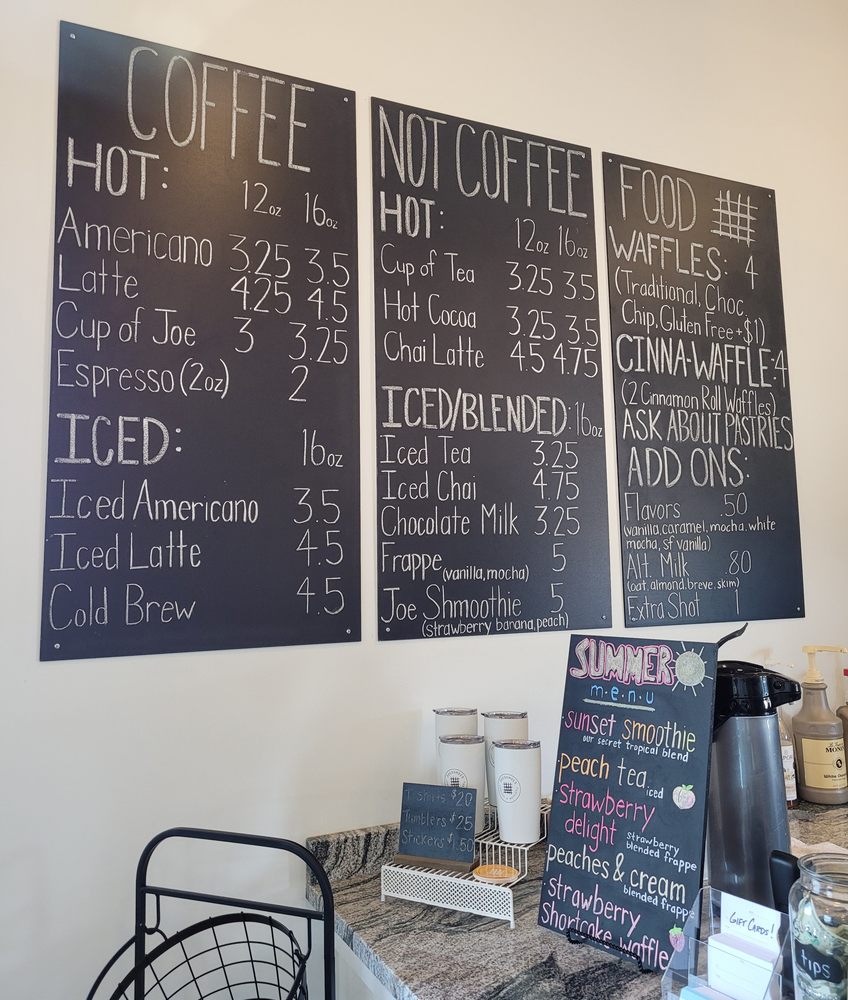 COFFEE
HOT:
12oz 16oz
Americano 3.25 3.5
Latte 4.25 4.5
Cup of Joe 3 3.25
Espresso (2oz) 2
ICED: 16oz
Iced Americano 3.5
Iced Latte 4.5
Cold Brew 4.5
NOT COFFEE
HOT:
12oz 16oz
Cup of Tea 3.25 3.5
Hot Cocoa 3.25 3.5
Chai Latte 4.5 4.75
ICED/BLENDED: 16oz
Iced Tea 3.25
Iced Chai 4.75
Chocolate Milk 3.25
Frappe (vanilla, mocha) 5
Joe Shmoothie 5
(strawberry banana, peach)
FOOD
WAFFLES: 4
(Traditional, Choc.
Chip, Gluten Free +$1)
CINNA-WAFFLE: 4
(2 Cinnamon Roll Waffles)
ASK ABOUT PASTRIES
ADD ONS:
Flavors .50
(vanilla, caramel, mocha, white
mocha, sf vanilla)
Alt. Milk .80
(oat, almond, breve, skim)
Extra Shot 1
SUMMER
m·e·n·u
·sunset smoothie
our secret tropical blend
·peach tea iced
·strawberry
delight strawberry
blended frappe
·peaches & cream
blended frappe
·strawberry
shortcake waffle
T-Shirts $20
Tumblers $25
Stickers $1.50
GIFT CARDS!
tips